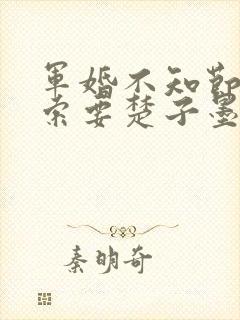 軍婚不知節
索要楚子墨
秦明奇